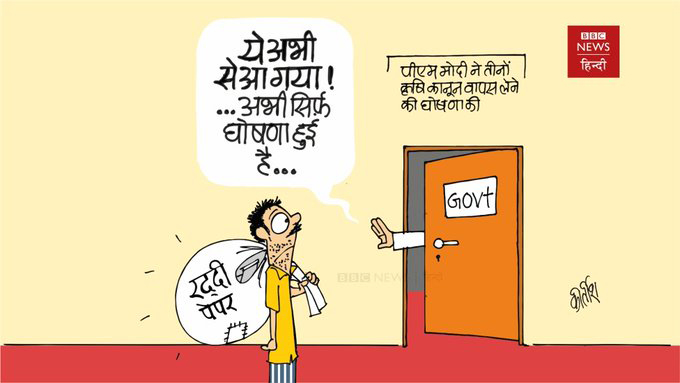 BBC
NEWS
हिन्दी
पीएम मोदी ने तीनों
कृषि कानून वापस लेने
की घोषणा की
ये अभी
से आ गया!
...अभी सिर्फ़
घोषणा हुई
है...
GOVt
रद्दी
पेपर
BBC NEWS हिन्दी
कीर्तिश